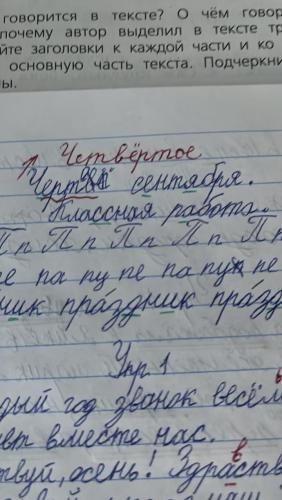 говорится в тексте? О чём говор
почему автор выделил в тексте тр
йте заголовки к каждой части и ко
основную часть текста. Подчеркни
ны.
Четвёртое
сентября.
Классная работа.
Пп Пп Пп Пп Пп
пе па пу пе па пу пе
ник праздник празд
Упр 1
дый год звонок весём
вет вместе нас.
твуй, осень! Здравств